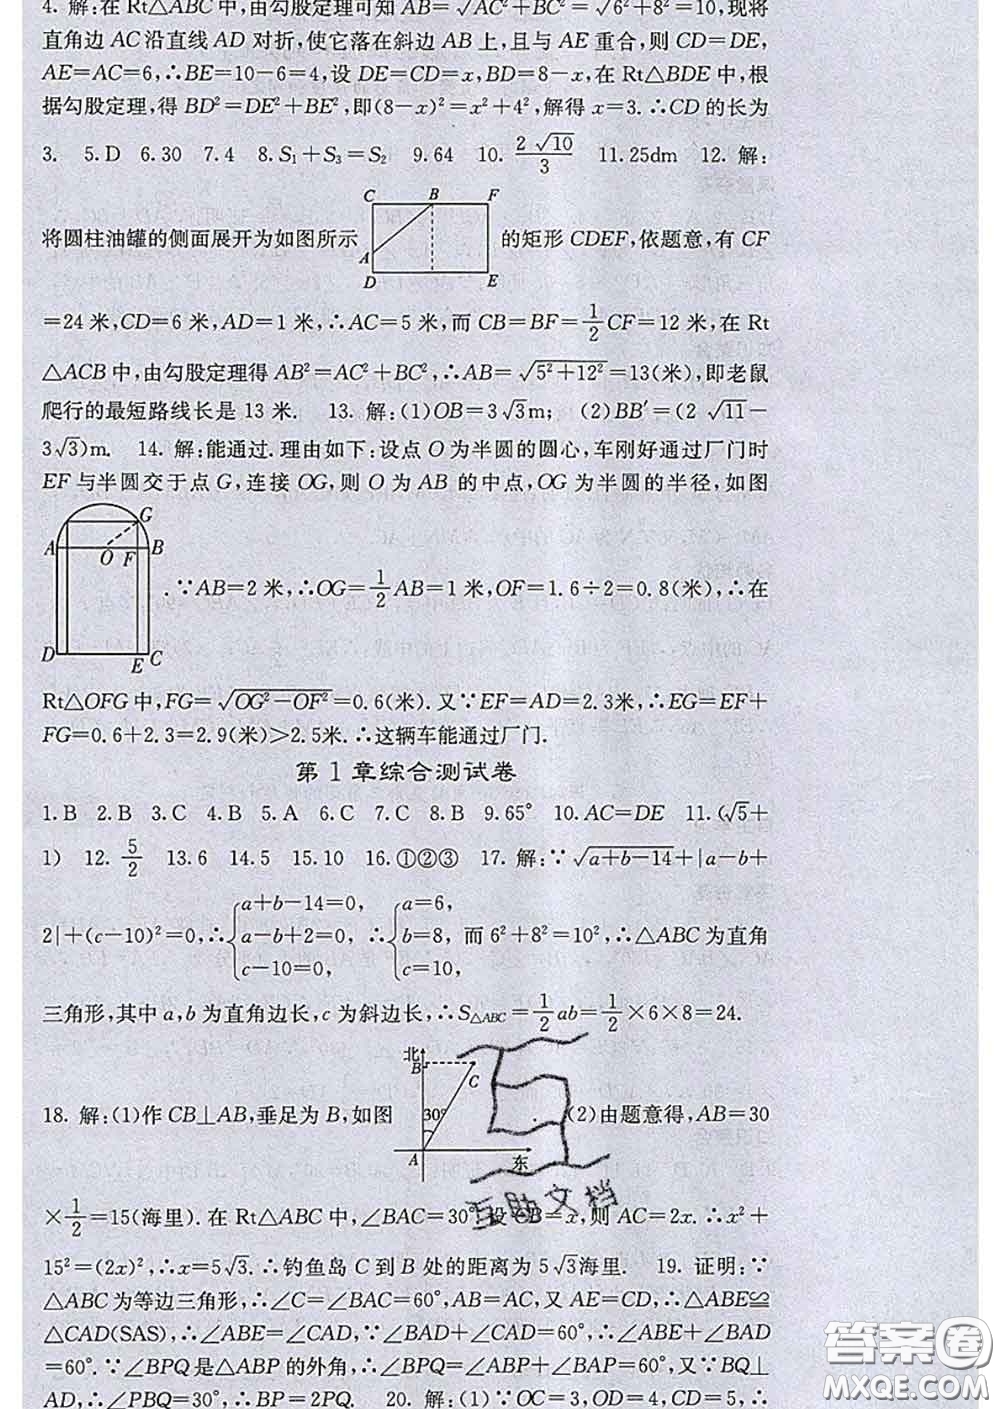 4. 解:在 Rt△ABC 中,由勾股定理可知 AB=√AC²+BC²=√6²+8²=10,现将
直角边 AC 沿直线 AD 对折,使它落在斜边 AB 上,且与 AE 重合,则 CD=DE,
AE=AC=6,∴BE=10-6=4,设 DE=CD=x,BD=8-x,在 Rt△BDE 中,根
据勾股定理,得 BD²=DE²+BE²,即(8-x)²=x²+4²,解得 x=3.∴CD 的长为
3. 5.D 6.30 7.4 8.S₁+S₃=S₂ 9.64 10. 2√10/3 11.25dm 12. 解:
C B F
将圆柱油罐的侧面展开为如图所示 的矩形 CDEF,依题意,有 CF
A
D E
=24 米,CD=6 米,AD=1 米,∴AC=5 米,而 CB=BF=1/2 CF=12 米,在 Rt
△ACB 中,由勾股定理得 AB²=AC²+BC²,∴AB=√5²+12²=13(米),即老鼠
爬行的最短路线长是 13 米. 13. 解:(1)OB=3√3m; (2)BB′=(2√11-
3√3)m. 14. 解:能通过.理由如下:设点 O 为半圆的圆心,车刚好通过厂门时
EF 与半圆交于点 G,连接 OG,则 O 为 AB 的中点,OG 为半圆的半径,如图
G
A O F B
.∵AB=2 米,∴OG=1/2 AB=1 米,OF=1.6÷2=0.8(米),∴在
D E C
Rt△OFG 中,FG=√OG²-OF²=0.6(米).又∵EF=AD=2.3米,∴EG=EF+
FG=0.6+2.3=2.9(米)>2.5米.∴这辆车能通过厂门.
第 1 章综合测试卷
1.B 2.B 3.C 4.B 5.A 6.C 7.C 8.B 9.65° 10.AC=DE 11.(√5+
1) 12. 5/2 13.6 14.5 15.10 16.①②③ 17. 解:∵√a+b-14+|a-b+
2|+(c-10)²=0,∴{a+b-14=0, a-b+2=0, c-10=0, ∴{a=6, b=8, c=10, 而 6²+8²=10²,∴△ABC 为直角
三角形,其中 a,b 为直角边长,c 为斜边长,∴S△ABC=1/2 ab=1/2×6×8=24.
北
B C
18. 解:(1)作 CB⊥AB,垂足为 B,如图 30° (2)由题意得,AB=30
A 东
×1/2=15(海里).在 Rt△ABC 中,∠BAC=30°,设 CB=x,则 AC=2x.∴x²+
互助文档
15²=(2x)²,∴x=5√3.∴钓鱼岛 C 到 B 处的距离为 5√3海里. 19. 证明:∵
△ABC 为等边三角形,∴∠C=∠BAC=60°,AB=AC,又 AE=CD,∴△ABE≌
△CAD(SAS),∴∠ABE=∠CAD,∵∠BAD+∠CAD=60°,∴∠ABE+∠BAD
=60°.∵∠BPQ 是△ABP 的外角,∴∠BPQ=∠ABP+∠BAP=60°,又∵BQ⊥
AD,∴∠PBQ=30°,∴BP=2PQ. 20. 解:(1)∵OC=3,OD=4,CD=5,∴
答案圈
MXQE.COM